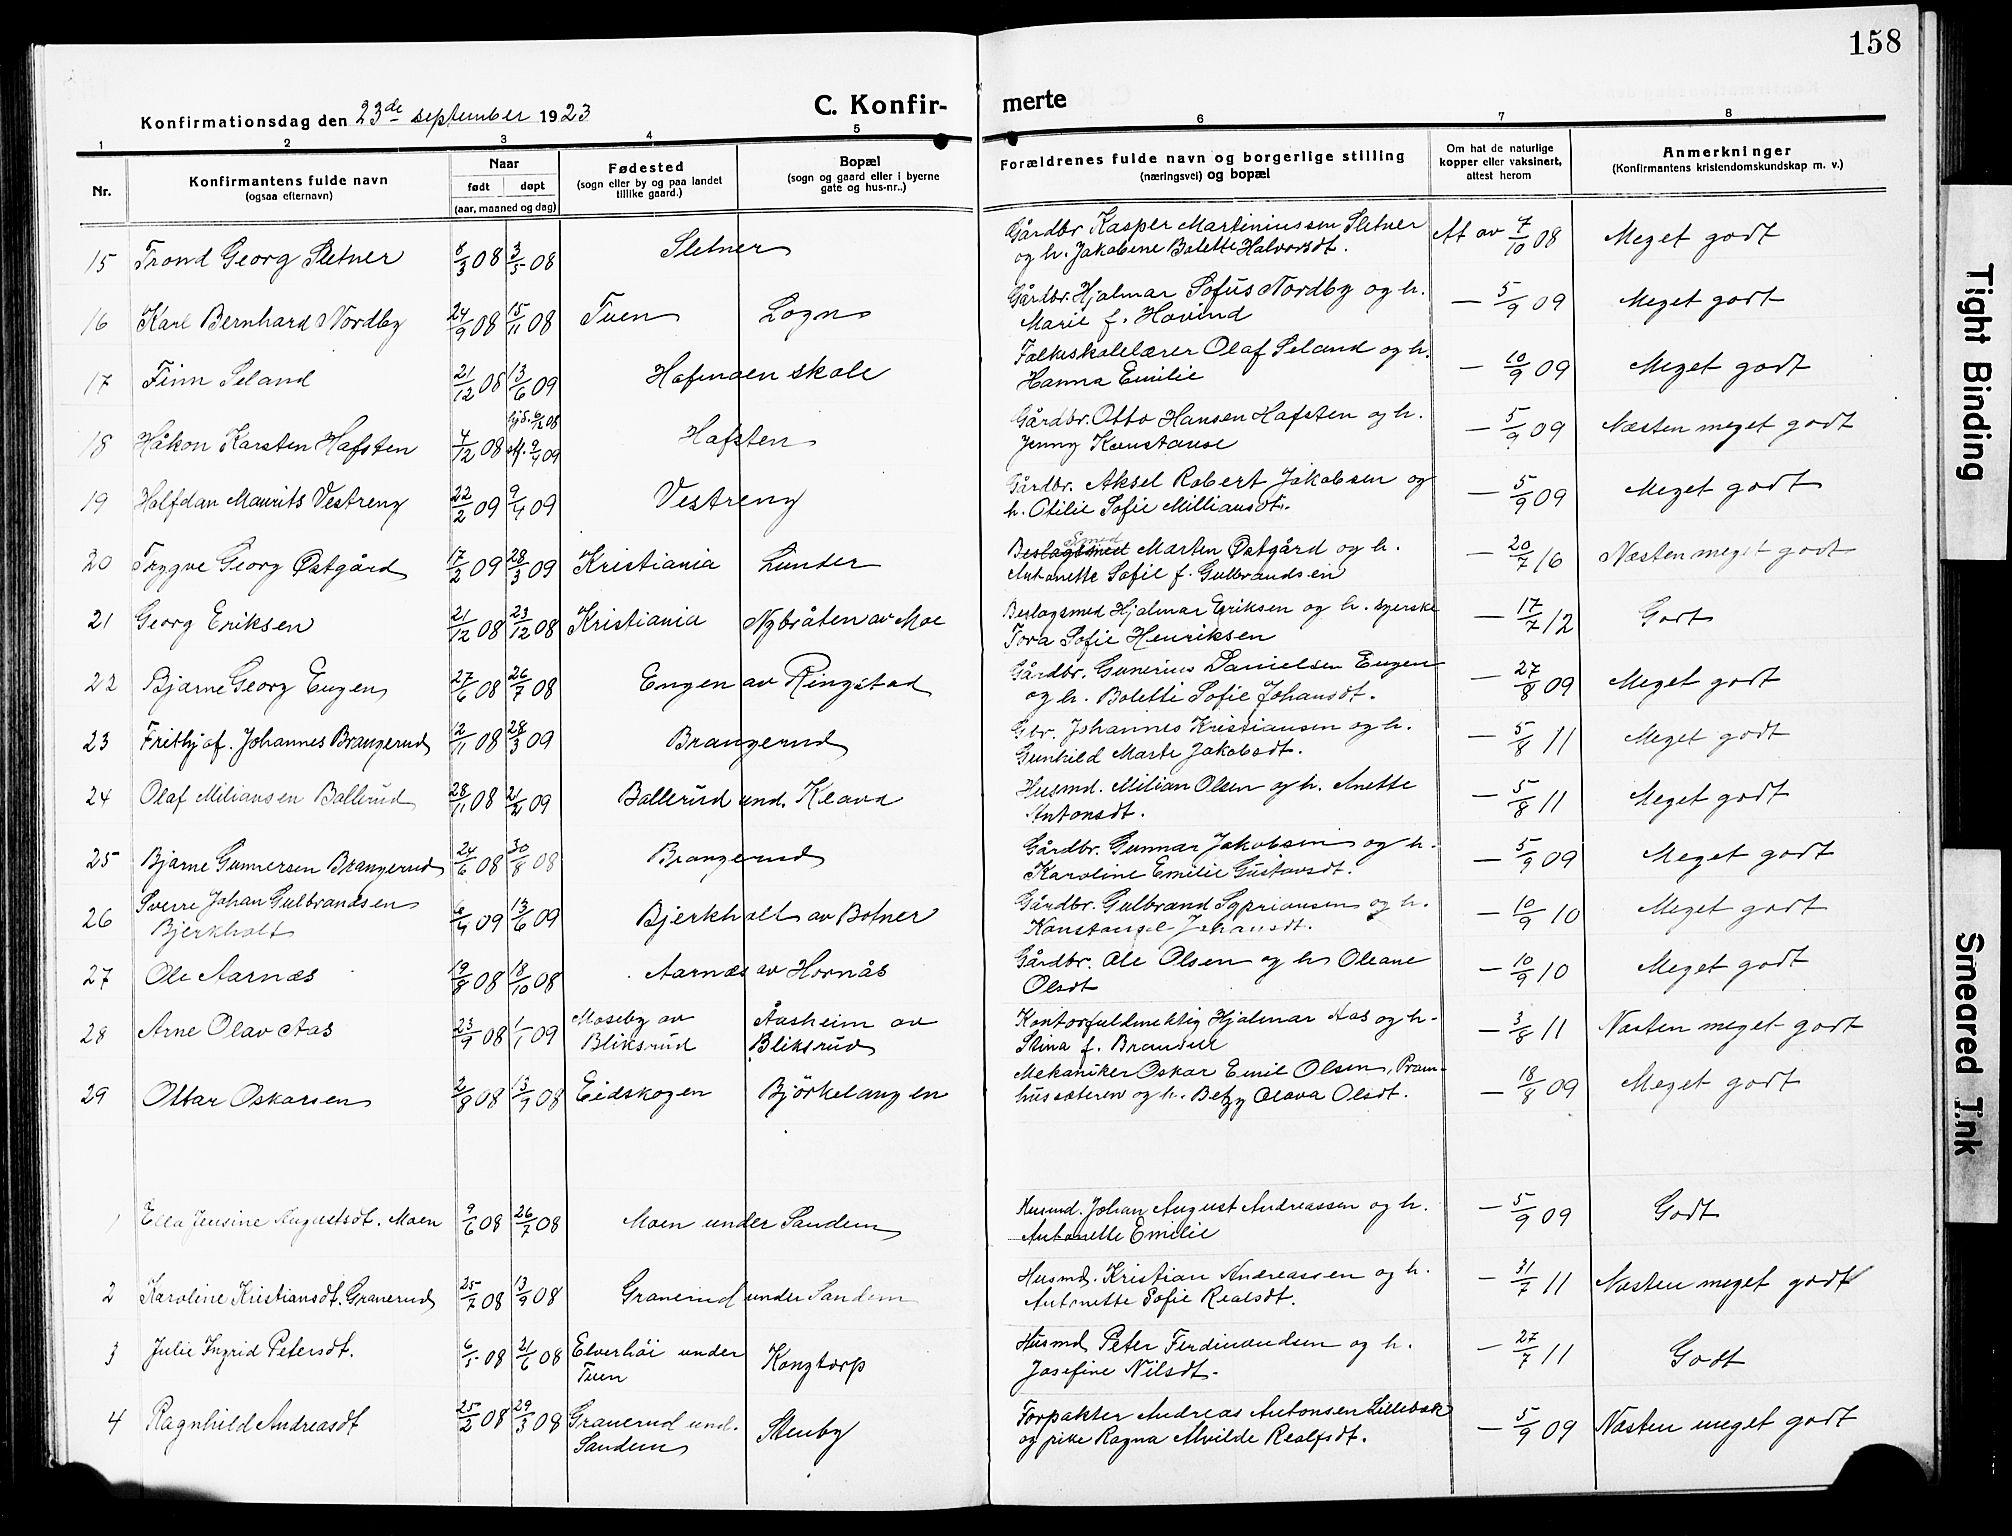 158
Konfirmationsdag den 23de september 1923
C. Konfir-
merte
1 2 3 4 5 6 7 8
Nr.
Konfirmantens fulde navn
(ogsaa efternavn)
Naar
født døpt
(aar, maaned og dag)
Fødested
(sogn eller by og paa landet
tillike gaard.)
Bopæl
(sogn og gaard eller i byerne
gate og hus-nr..)
Forældrenes fulde navn og borgerlige stilling
(næringsvei) og bopæl
Om hat de naturlige
kopper eller vaksinert,
attest herom
Anmerkninger
(Konfirmantens kristendomskundskap m. v.)
15 Trond Georg Sletner 8/3 08 3/5 08 Sletner Gårdbr. Kasper Martiniussen Sletner At av 7/10 08 Meget godt
og h. Jakobine Bolette Halvorsdt.
16 Karl Bernhard Nordby 24/9 08 15/11 08 Tuen Logn Gårdbr. Hjalmar Sofus Nordby og h. — 5/9 09 Meget godt
Marie f. Hovind
17 Finn Seland 21/12 08 13/6 09 Hofmoen skole Folkeskolelærer Olaf Seland og h. — 10/9 09 Meget godt
Hanna Emilie
18 Håkon Karsten Hafsten 4/12 08 hjd. 6/12 08 Hafsten Gårdbr. Otto Hansen Hafsten og h. — 5/9 09 Næsten meget godt
st. 9/4 09 Jenny Konstanse
19 Halfdan Maurits Vestreng 22/2 09 9/4 09 Vestreng Gårdbr. Aksel Robert Jakobsen og — 5/9 09 Meget godt
h. Otilie Sofie Milliansdt.
20 Trygve Georg Østgård 17/2 09 28/3 09 Kristiania Lunder Beslagsmed Smed Marten Østgård og h. — 20/7 16 Næsten meget godt
Antonette Sofie f. Gulbrandsen
21 Georg Eriksen 21/12 08 23/12 08 Kristiania Nybråten av Moe Beslagsmed Hjalmar Eriksen og h. syerske — 17/7 12 Godt
Tora Sofie Henriksen
22 Bjarne Georg Engen 27/6 08 26/7 08 Engen av Ringstad Gårdbr. Gunerius Danielsen Engen — 27/8 09 Meget godt
og h. Bolette Sofie Johansdt.
23 Frithjof Johannes Brangerud 12/11 08 28/3 09 Brangerud Gbr. Johannes Kristiansen og h. — 5/8 11 Meget godt
Gunhild Marte Jakobsdt.
24 Olaf Miliansen Ballerud 28/11 08 21/2 09 Ballerud und. Klava Husmd. Milian Olsen og h. Anette — 5/8 11 Meget godt
Antonsdt.
25 Bjarne Gunnersen Brangerud 24/6 08 30/8 08 Brangerud Gårdbr. Gunnar Jakobsen og h. — 5/9 09 Meget godt
Karoline Emilie Gustavsdt.
26 Sverre Johan Gulbrandsen 6/4 09 13/6 09 Bjerkholt av Botner Gårdbr. Gulbrand Syprianssen og h. — 10/9 10 Meget godt
Bjerkholt Konstanse Johansdt.
27 Ole Aarnæs 19/8 08 18/10 08 Aarnæs av Hornås Gårdbr. Ole Olsen og h. Oleane — 10/9 10 Meget godt
Olsdt
28 Arne Olav Aas 23/9 08 1/1 09 Moseby av Åasheim av Kontorfuldmektig Hjalmar Aas og h. — 3/8 11 Næsten meget godt
Bliksrud Bliksrud Stina f.
29 Ottar Oskarsen 2/8 08 13/9 08 Eidskogen Björkelangen Mekaniker Oskar Emil Olsen, Pram- — 18/8 09 Meget godt
hussæteren og h. Betzy Olava Olsdt.
1 Ella Jensine Augustsdt. Moen 9/6 08 26/7 08 Moen under Sandem Husmd. Johan August Andreassen og h. — 5/9 09 Godt
Antonette Emilie
2 Karoline Kristiansdt. Granerud 25/7 08 13/9 08 Granerud under Sandem Husmd. Kristian Andreassen og h. — 31/7 11 Næsten meget godt
Antonette Sofie Realsdt.
3 Julie Ingrid Petersdt. 6/5 08 21/6 08 Elverhöi under Kongtorp Husmd Peter Ferdinandsen og h. — 27/7 11 Godt
Tuen Josefine Nilsdt.
4 Ragnhild Andreasdt 25/2 08 29/3 08 Granerud und. Stenby Forpakter Andreas Antonsen Lillebæk — 5/9 09 Næsten meget godt
Sandem og pike Ragna Alvilde Realfsdt.
Tight Binding
Smeared Ink